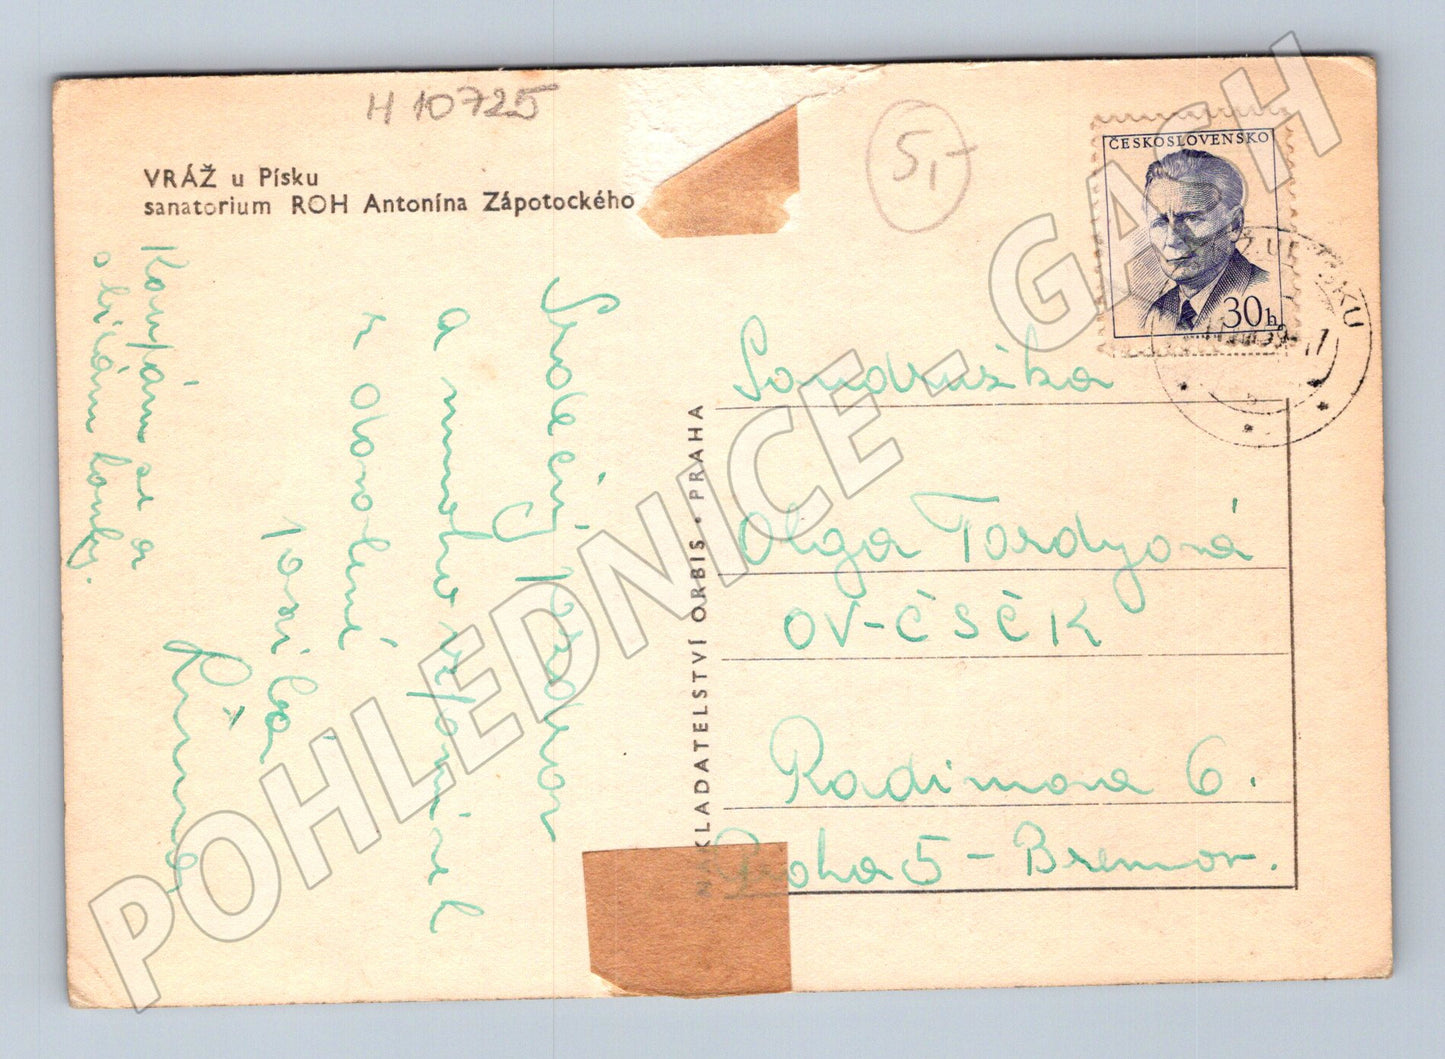 H 10725
5,-
VRÁŽ u Písku
sanatorium ROH Antonína Zápotockého
ČESKOSLOVENSKO
30h
Srdečný pozdrav
a mnoho vzpomínek
z dovolené
posílá
Koupám se a
sbírám houby.
NAKLADATELSTVÍ ORBIS · PRAHA
Soudružka
Olga Tordyová
OV-ČSČK
Radimova 6.
Praha 5 - Břevnov.
POHLEDNICE - GASH